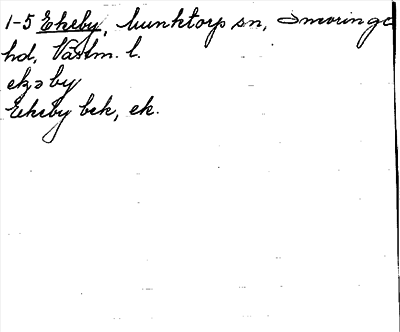 1-5 Ekeby, Munktorp sn, Snevringe
hd, Västm. l.
ekə by
Ekeby bek, ek.